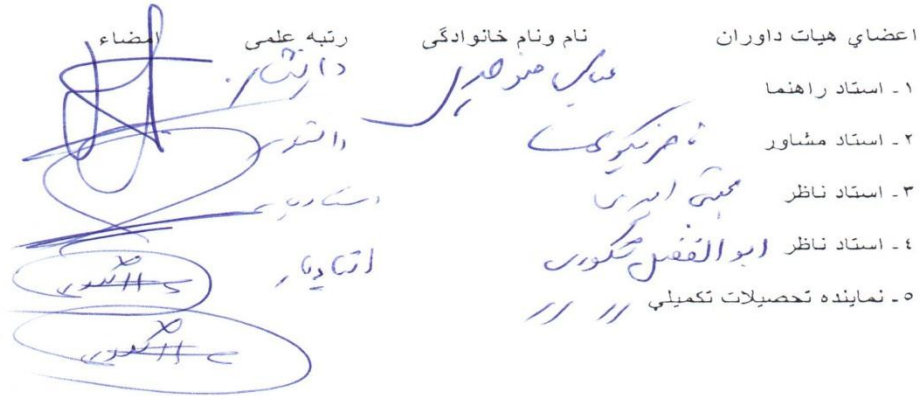 اعضاي هيات داوران نام ونام خانوادگی رتبه علمی امضاء
۱ ـ استاد راهنما عباس منوچهری دانشیار
۲ ـ استاد مشاور دانشیار
۳ ـ استاد ناظر مجتبی استادیار
٤ ـ استاد ناظر ابوالفضل شکوری استادیار
٥ ـ نماینده تحصیلات تکمیلي // //